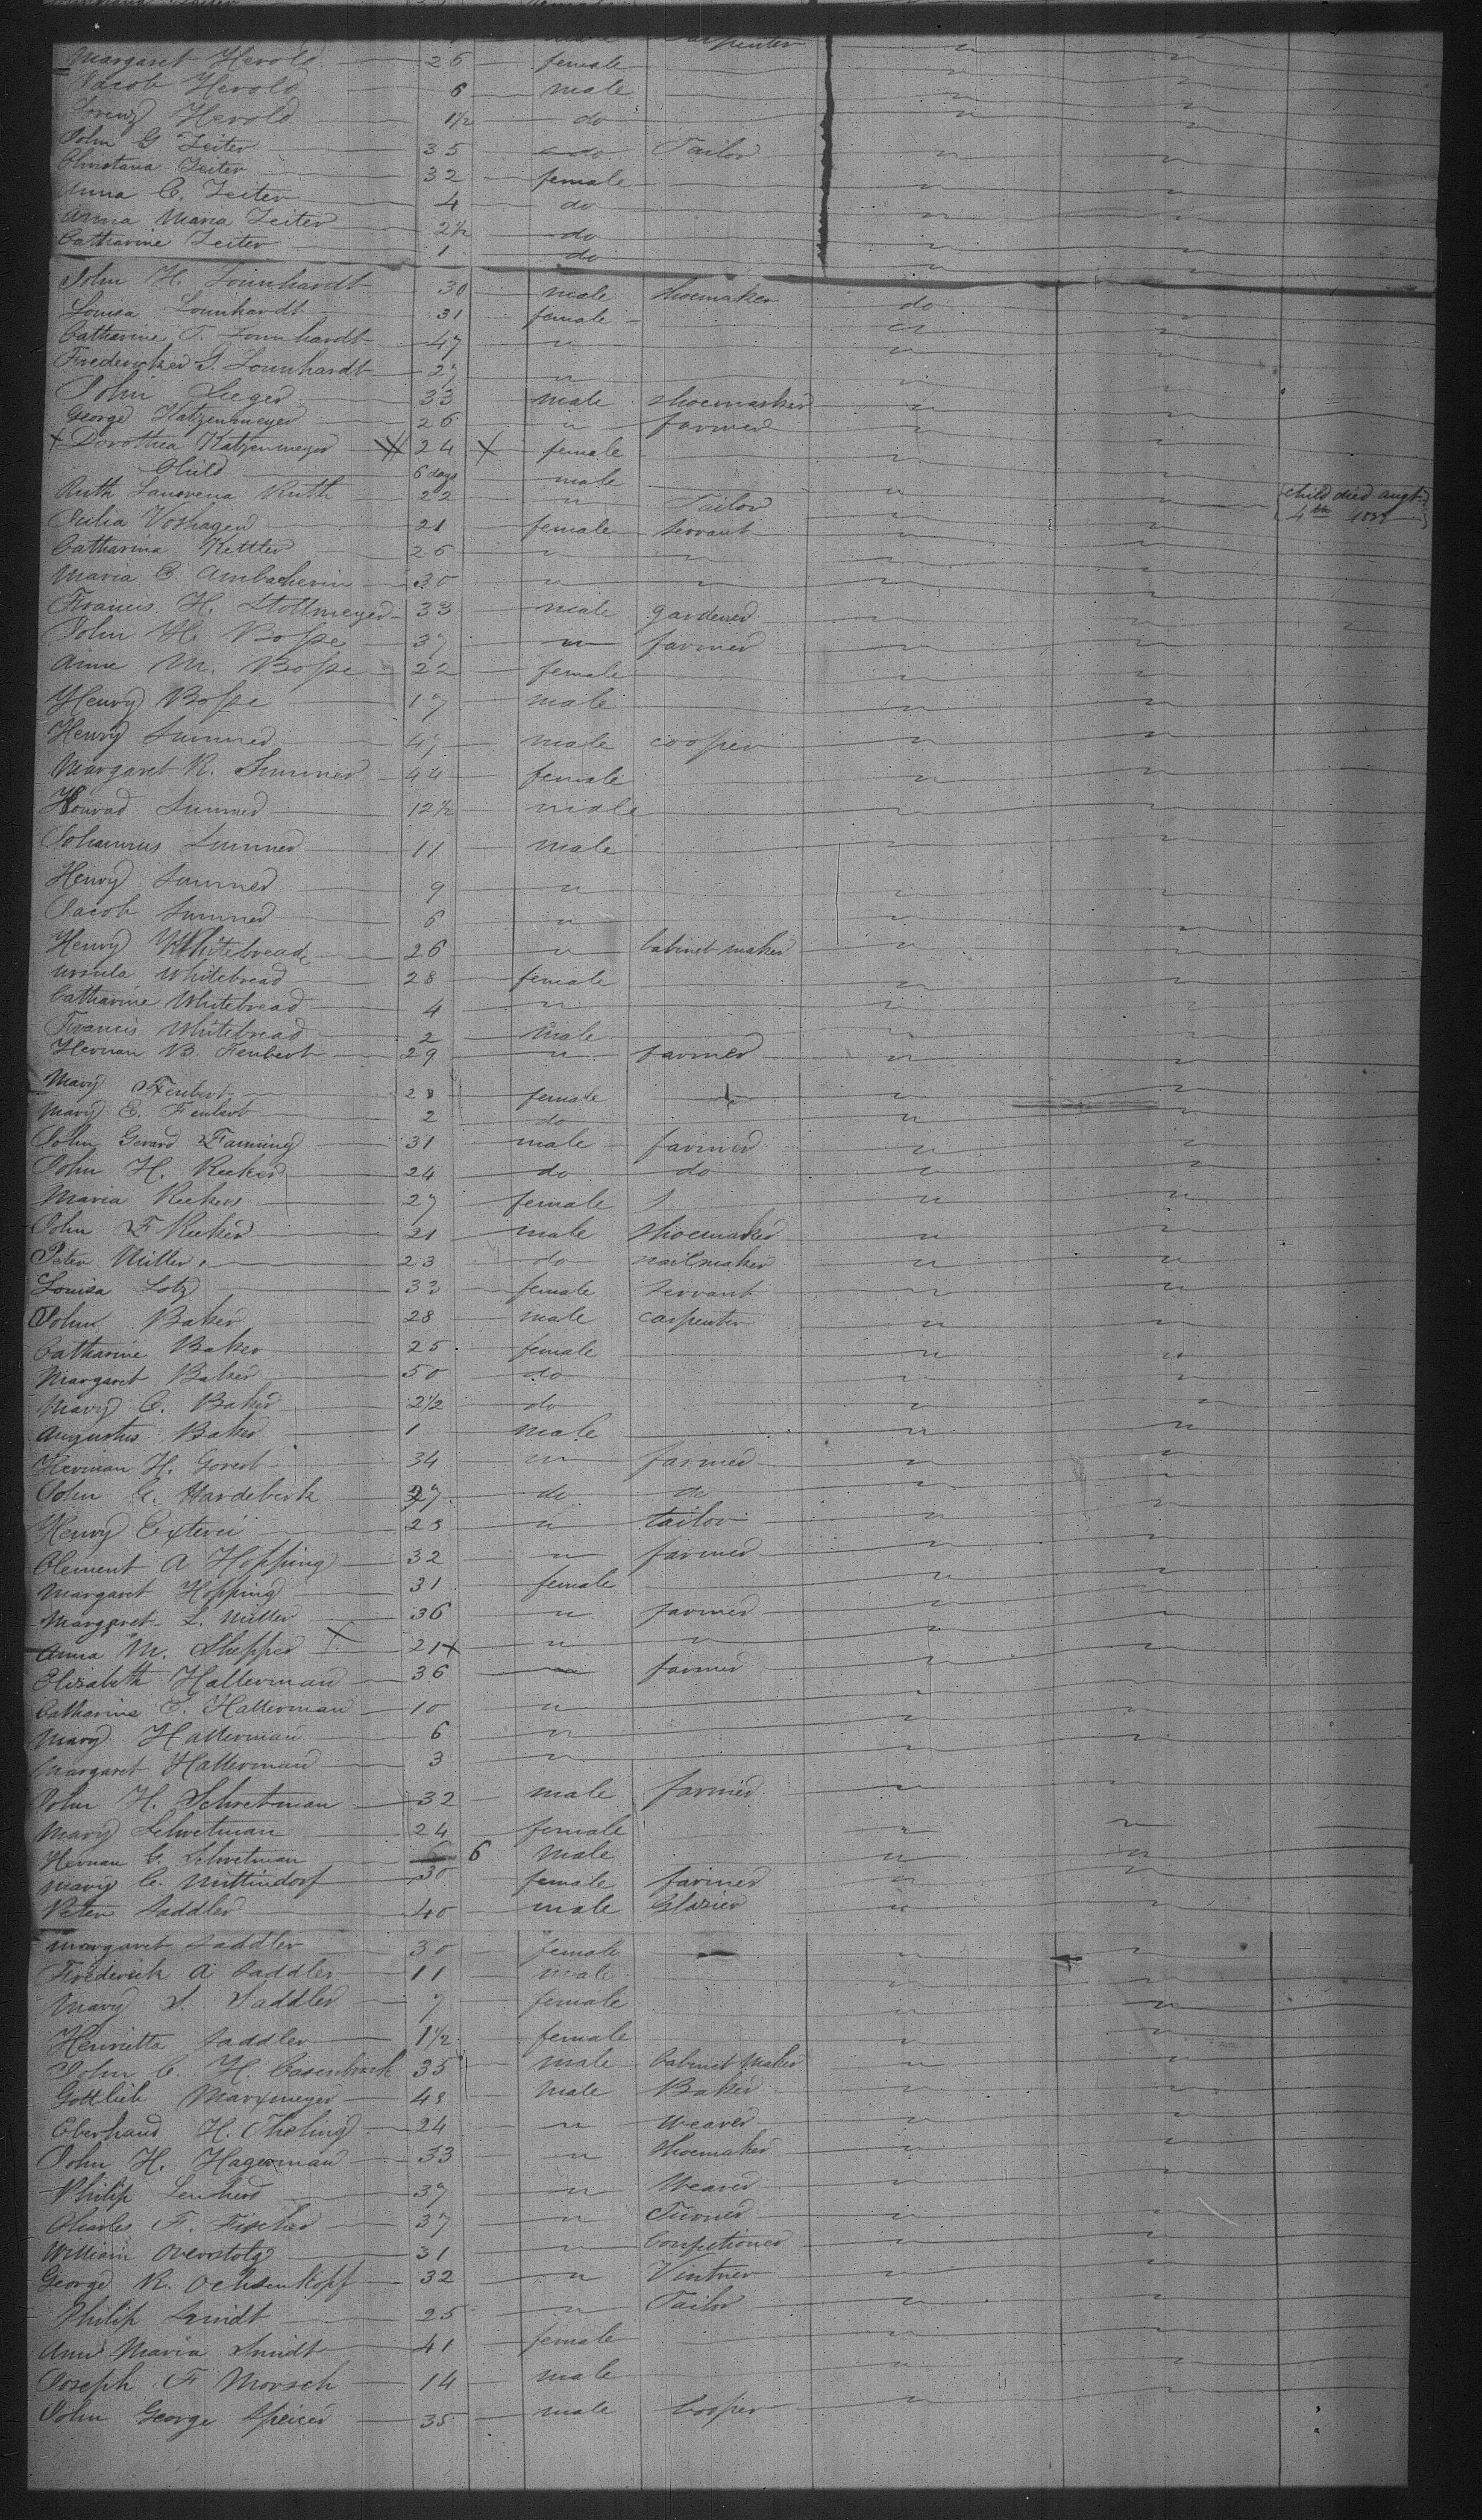 Carpenter
Margaret Herold 26 female " "
Jacob Herold 6 male " "
Lorenz Herold 1½ do " "
John G Zeiter 35 do Tailor " "
Christana Zeiter 32 female " "
Anna C. Zeiter 4 do " "
Anna Maria Zeiter 2½ do " "
Catharine Zeiter 1 do " "
John H. Lounhardt 30 male Shoemaker do "
Louisa Lounhardt 31 female " "
Catharine F. Lounhardt 47 " " "
Fredericker S. Lounhardt 27 " " "
John Seeger 33 male shoemaker " "
George Katzenmeyer 26 " farmer " "
x Dorothea Katzenmeyer 24 x female " "
Child 6 days male " " (child died augt
Ruth Lanovena Ruth 22 " Tailor " " 4th
Julia Voshagen 21 female servant " "
Catharina Kettler 26 " " " "
Maria E Ambacherin 30 " " " "
Francis. H. Stollmeyer 33 male gardener " "
John H. Bosse 37 " farmer " "
Anne M. Bosse 22 female " "
Henry Bosse 17 male " "
Henry Summer 47 male cooper " "
Margaret R. Summer 44 female " "
Konrad Summer 12½ male " "
Johannus Summer 11 male " "
Henry Summer 9 " " "
Jacob Summer 6 " " "
Henry Whitebread 26 " Cabinet maker " "
Ursula Whitebread 28 female " "
Catharine Whitebread 4 " " "
Francis Whitebread 2 male " "
Herman B. Feubert 29 " farmer " "
Mary Feubert 28 female " "
Mary E. Feubert 2 do " "
John Gerard Fanning 31 male farmer " "
John H. Reeker 24 do do " "
Maria Reekers 27 female " "
John F Reeker 21 male shoemaker " "
Peter Miller 23 do nailmaker " "
Louisa Lotz 33 female servant " "
John Baker 28 male carpenter " "
Catharine Baker 25 female " "
Margaret Baker 50 do " "
Mary C. Baker 2½ do " "
Augustus Baker 1 male " "
Herman H. Gorest 34 " farmer " "
John G. Hardebeck 27 do do " "
Henry Exterei 23 " tailor " "
Clement A Hopping 32 " farmer " "
Margaret Hopping 31 female " "
Margaret L. Miller 36 " farmer " "
Anna M. Shepper x 21 x " " " "
Elizabeth Hallerman 36 " farmer " "
Catharine E. Hallerman 10 " " "
Mary Hallerman 6 " " "
Margaret Hallerman 3 " " "
John H. Schwetman 32 male farmer " "
Mary Schwetman 24 female " "
Herman G. Schwetman 6 6 male " "
Mary C. Mittindorf 30 female farmer " "
Peter Saddler 40 male Glazier " "
Margaret Saddler 30 female " "
Frederick A Saddler 11 male " "
Mary S. Saddler 7 female " "
Henrietta Saddler 1½ female " "
John C. H. Casenbrock 35 male Cabinet Maker " "
Gottlieb Marxmeyer 48 male Baker " "
Eberhand H. Theling 24 " Weaver " "
John H. Hagerman 33 " Shoemaker " "
Philip Lenherd 37 " Weaver " "
Charles F. Fischer 37 " Turner " "
William Overstolz 31 " Confectioner " "
George R. Ochsenkopf 32 " Vintner " "
Philip Smidt 25 " Tailor " "
Ann Maria Smidt 41 female " "
Joseph F Morsch 14 male " "
John George Speicer 35 male Cooper " "